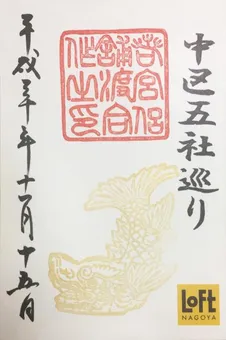 中区五社巡り
平成三十年十一月十五日
LOFT
NAGOYA